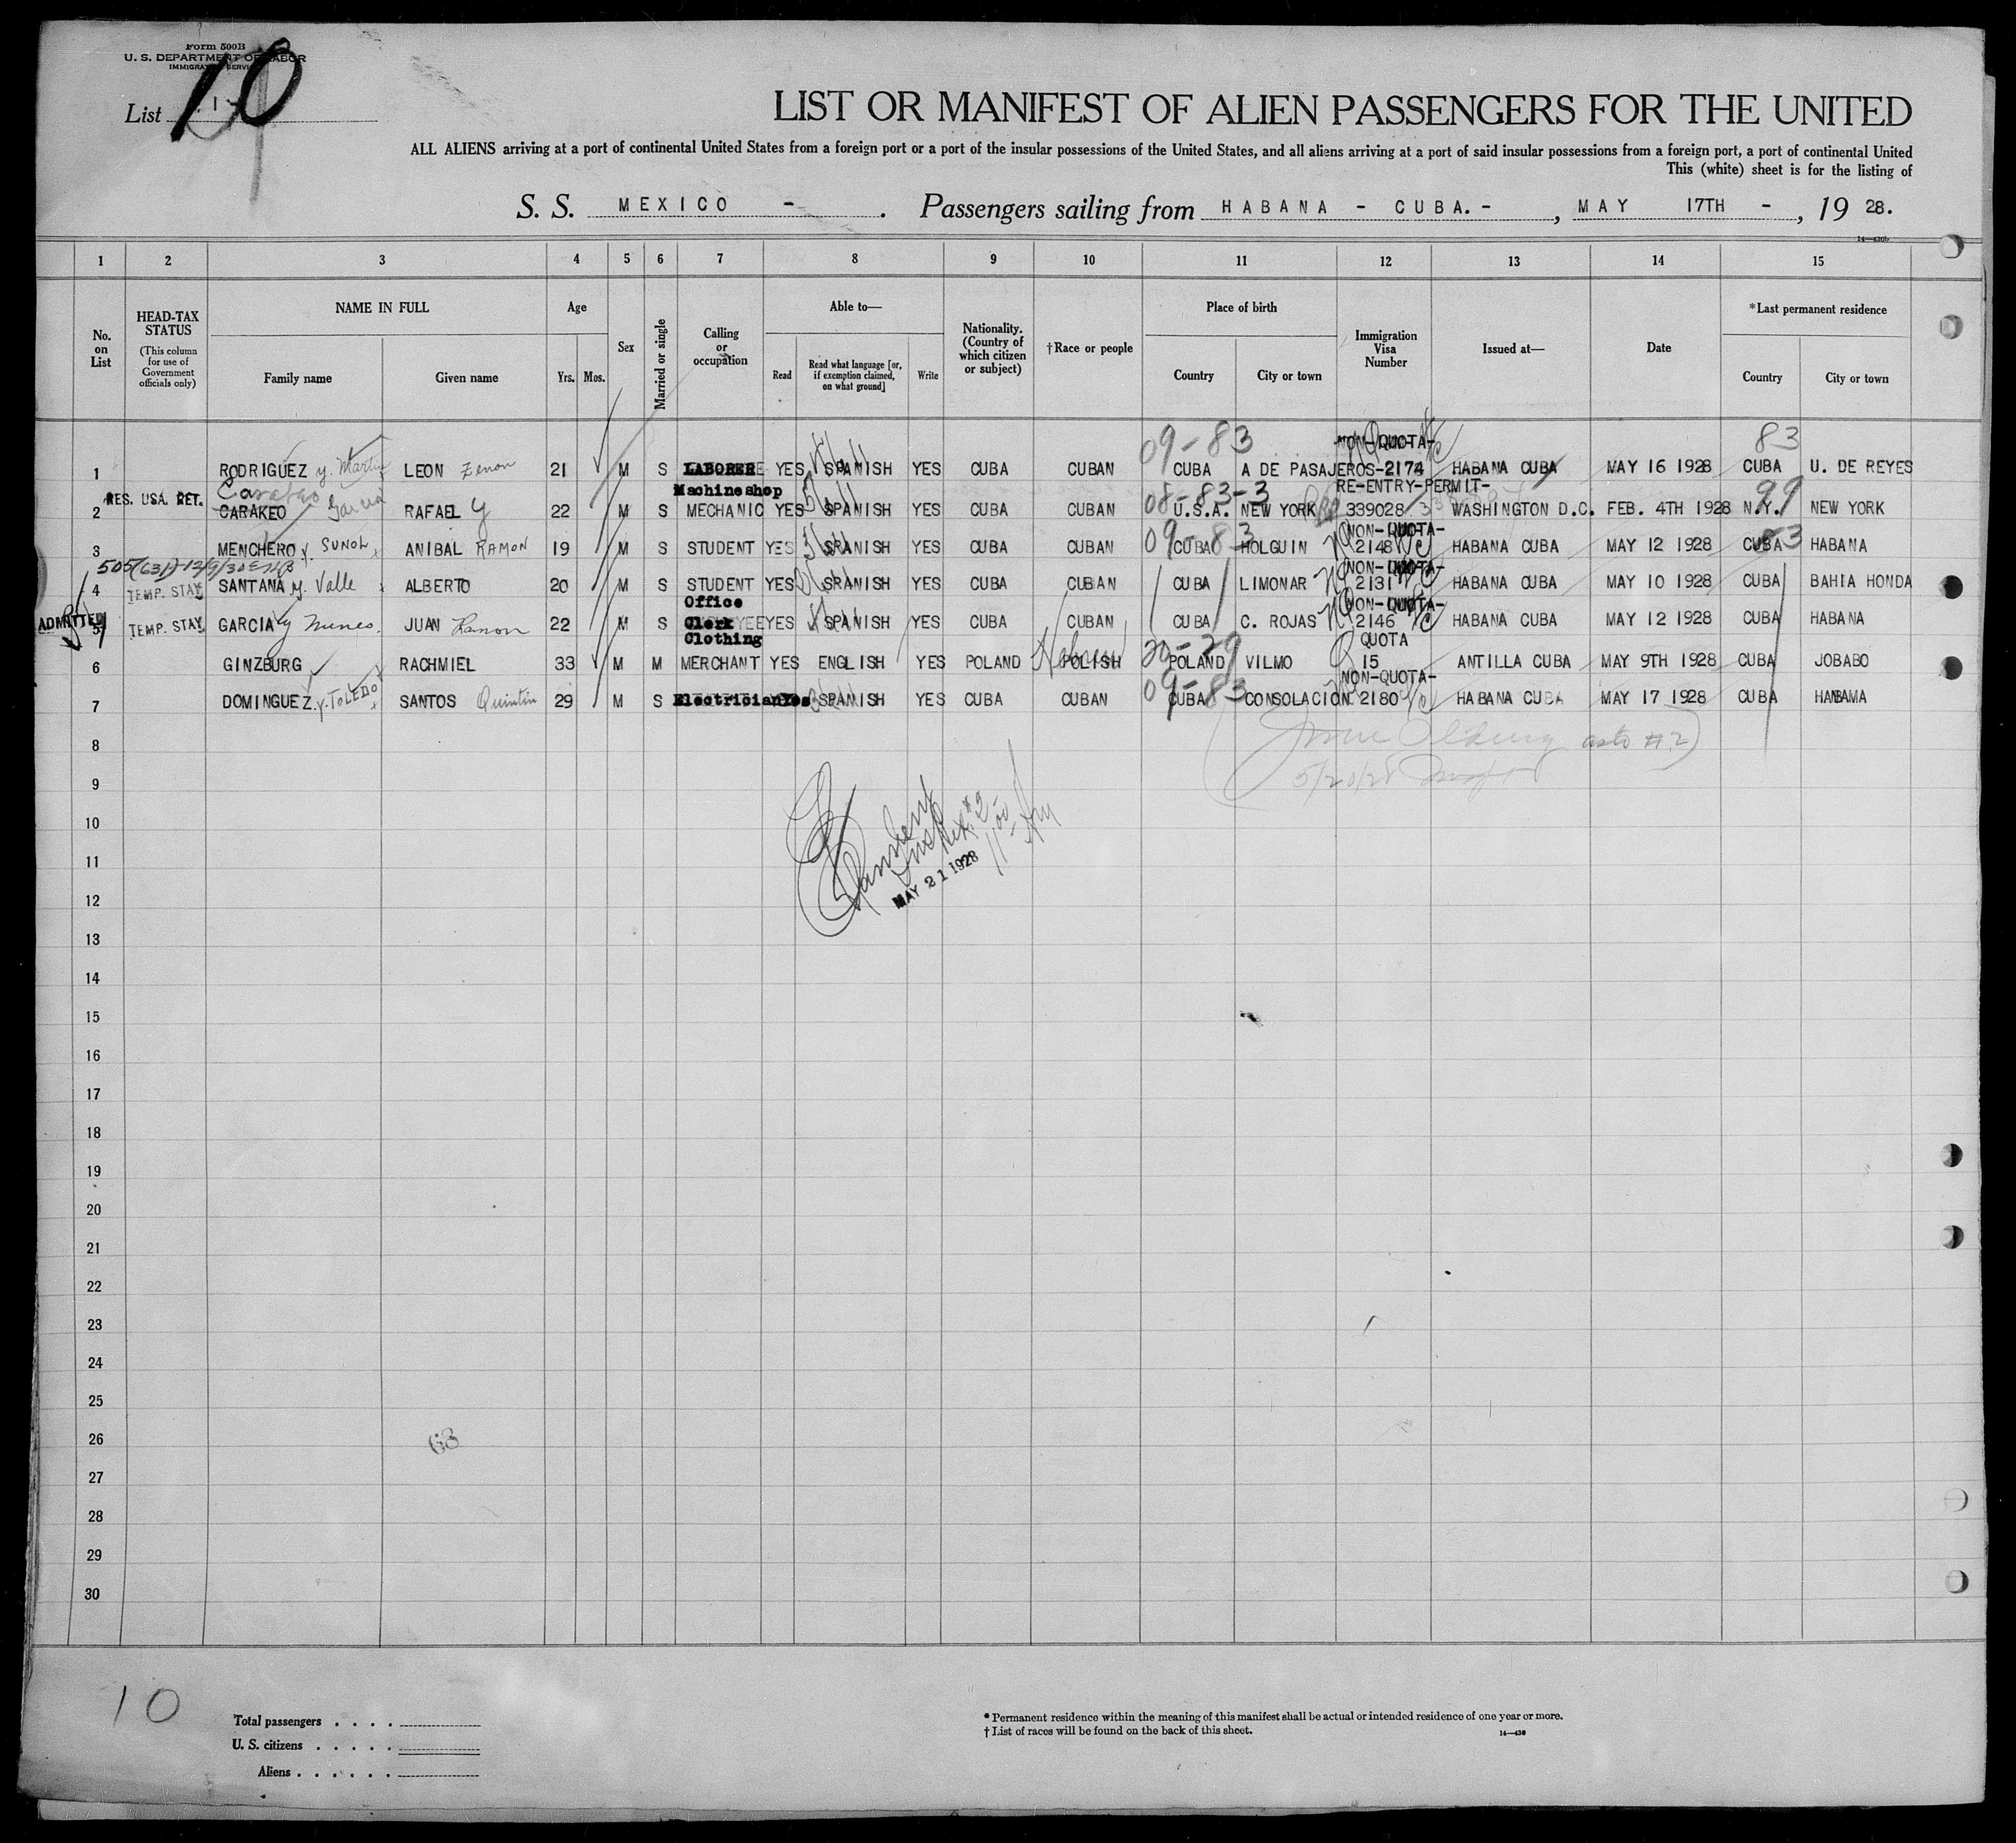 Form 500B
U. S. DEPARTMENT OF LABOR
IMMIGRATION SERVICE
List 1
10
LIST OR MANIFEST OF ALIEN PASSENGERS FOR THE UNITED
ALL ALIENS arriving at a port of continental United States from a foreign port or a port of the insular possessions of the United States, and all aliens arriving at a port of said insular possessions from a foreign port, a port of continental United
This (white) sheet is for the listing of
S. S. MEXICO - . Passengers sailing from HABANA - CUBA. - , MAY 17TH - , 19 28.
14—430b
1 2 3 4 5 6 7 8 9 10 11 12 13 14 15
No. on List
HEAD-TAX STATUS (This column for use of Government officials only)
NAME IN FULL
Family name Given name
Age
Yrs. Mos.
Sex
Married or single
Calling or occupation
Able to—
Read
Read what language [or, if exemption claimed, on what ground]
Write
Nationality. (Country of which citizen or subject)
†Race or people
Place of birth
Country City or town
Immigration Visa Number
Issued at—
Date
*Last permanent residence
Country City or town
09-83 NON-QUOTA- 83
1 RODRIGUEZ y. Martin LEON Zenon 21 M S LABORER YES SPANISH YES CUBA CUBAN CUBA A DE PASAJEROS-2174 HABANA CUBA MAY 16 1928 CUBA U. DE REYES
RES. USA. RET. Machineshop 08-83-3 RE-ENTRY-PERMIT- 99
2 CARAKEO Garcia RAFAEL y 22 M S MECHANIC YES SPANISH YES CUBA CUBAN U.S.A. NEW YORK 339028 WASHINGTON D.C. FEB. 4TH 1928 N.Y. NEW YORK
09-83 NON-QUOTA-
3 MENCHERO y. SUNOL ANIBAL RAMON 19 M S STUDENT YES SPANISH YES CUBA CUBAN CUBA HOLGUIN 2148 HABANA CUBA MAY 12 1928 CUBA 83 HABANA
NON-QUOTA-
4 TEMP. STAY SANTANA y. Valle ALBERTO 20 M S STUDENT YES SPANISH YES CUBA CUBAN CUBA LIMONAR 2131 HABANA CUBA MAY 10 1928 CUBA BAHIA HONDA
ADMITTED Office NON-QUOTA-
5 TEMP. STAY GARCIA y Nunes JUAN Ramon 22 M S Clerk YES SPANISH YES CUBA CUBAN CUBA C. ROJAS 2146 HABANA CUBA MAY 12 1928 CUBA HABANA
Clothing QUOTA
6 GINZBURG RACHMIEL 33 M M MERCHANT YES ENGLISH YES POLAND POLISH Hebrew POLAND VILMO Q 15 ANTILLA CUBA MAY 9TH 1928 CUBA JOBABO
09-83 NON-QUOTA-
7 DOMINGUEZ y. TOLEDO SANTOS Quintin 29 M S Electrician Yes SPANISH YES CUBA CUBAN CUBA CONSOLACION 2180 HABANA CUBA MAY 17 1928 CUBA
8
9
10
11
MAY 21 1928
12
13
14
15
16
17
18
19
20
21
22
23
24
25
26
68
27
28
29
30
10
Total passengers . . . .
U. S. citizens . . . . .
Aliens . . . . . .
* Permanent residence within the meaning of this manifest shall be actual or intended residence of one year or more.
† List of races will be found on the back of this sheet.
14—430